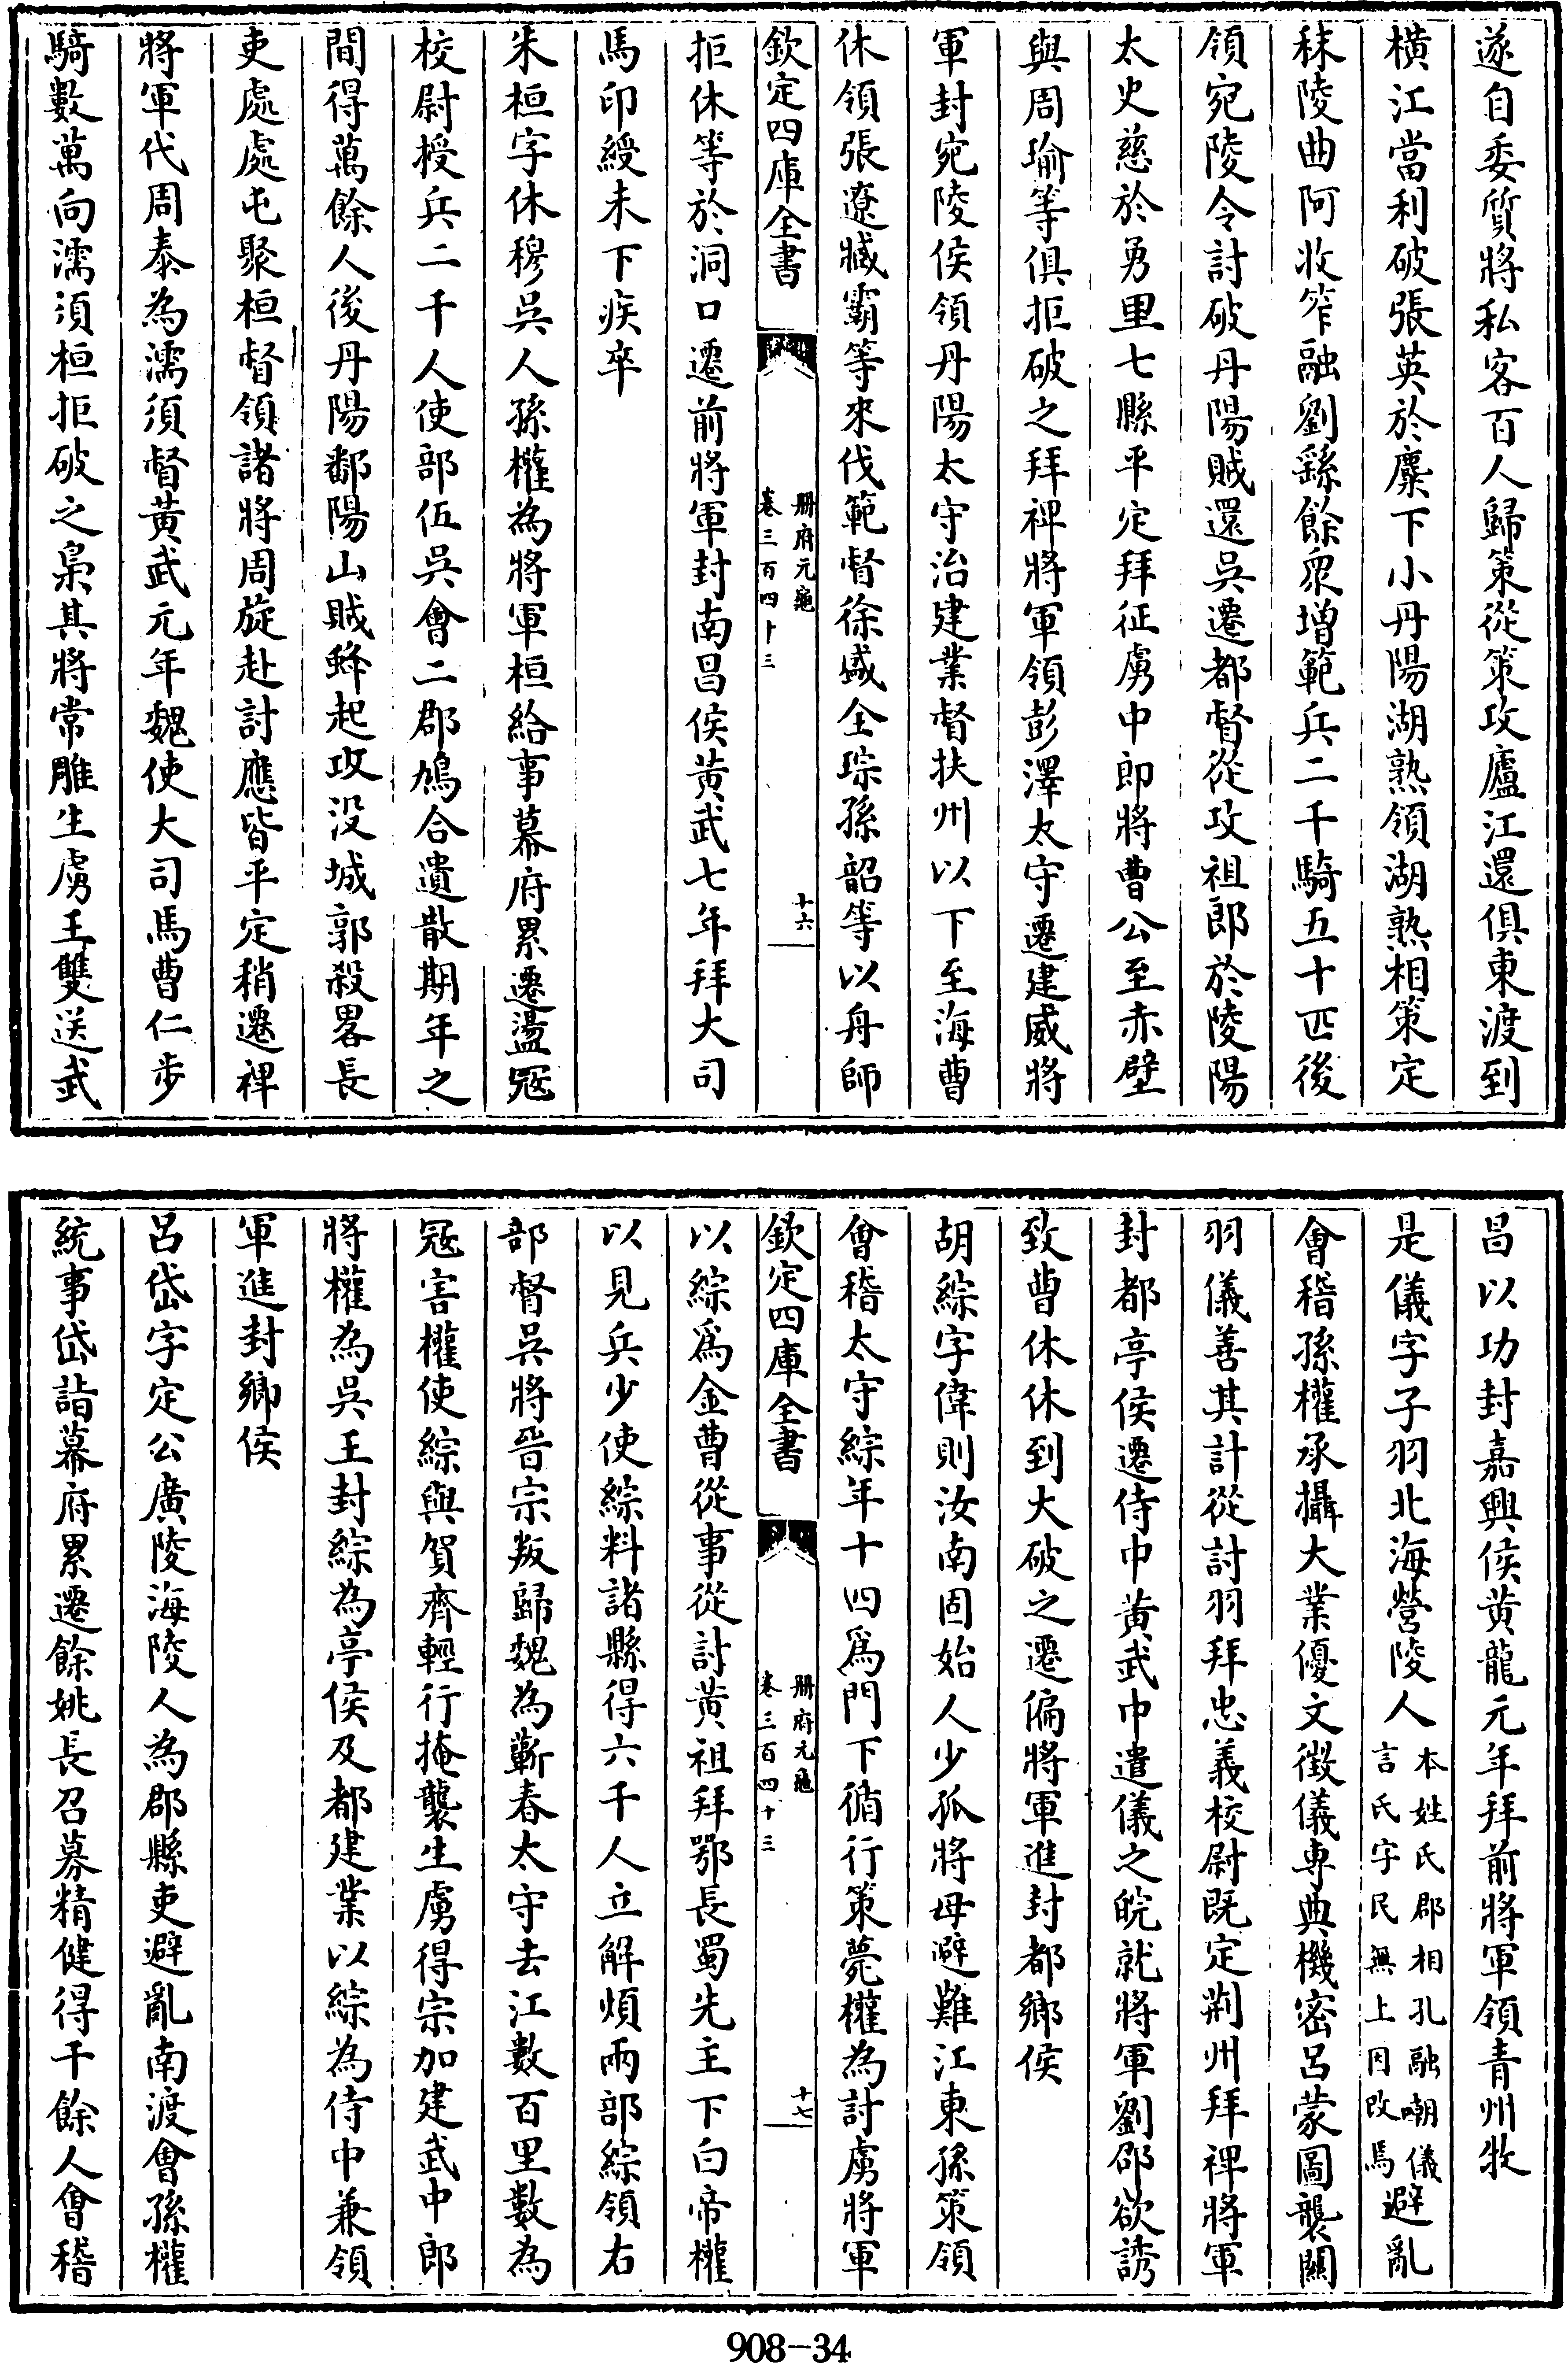 遂自委質將私客百人歸策從策攻廬江還俱東渡到
橫江當利破張英於麋下小丹陽湖熟領湖熟相策定
秣陵曲阿收笮融劉繇餘衆增範兵二千騎五十匹後
領宛陵令討破丹陽賊還吳遷都督從攻祖郎於陵陽
太史慈於勇里七縣平定拜征虜中郎將曹公至赤壁
與周瑜等俱拒破之拜裨將軍領彭澤太守遷建威將
軍封宛陵侯領丹陽太守治建業督扶州以下至海曹
休領張遼臧霸等來伐範督徐盛全琮孫韶等以舟師
欽定四庫全書
冊府元龜
卷三百四十三
十六
拒休等於洞口遷前將軍封南昌侯黃武七年拜大司
馬印綬未下疾卒
朱桓字休穆吳人孫權為將軍桓給事幕府累遷盪寇
校尉授兵二千人使部伍吳會二郡鳩合遺散期年之
間得萬餘人後丹陽鄱陽山賊蜂起攻沒城郭殺畧長
吏處處屯聚桓督領諸將周旋赴討應皆平定稍遷裨
將軍代周泰為濡須督黃武元年魏使大司馬曹仁步
騎數萬向濡須桓拒破之梟其將常雕生虜王雙送武
昌以功封嘉興侯黃龍元年拜前將軍領青州牧
是儀字子羽北海營陵人本姓氏郡相孔融嘲儀言氏字民無上因改焉避亂
會稽孫權承攝大業優文徵儀專典機密呂蒙圖襲關
羽儀善其計從討羽拜忠義校尉既定荆州拜裨將軍
封都亭侯遷侍中黃武中遣儀之皖就將軍劉邵欲誘
致曹休休到大破之遷偏將軍進封都鄉侯
胡綜字偉則汝南固始人少孤將母避難江東孫策領
會稽太守綜年十四爲門下循行策薨權為討虜將軍
欽定四庫全書
冊府元龜
卷三百四十三
十七
以綜爲金曹從事從討黃祖拜鄂長蜀先主下白帝權
以見兵少使綜料諸縣得六千人立解煩兩部綜領右
部督吳將晉宗叛歸魏為蘄春太守去江數百里數為
寇害權使綜與賀齊輕行掩襲生虜得宗加建武中郎
將權為吳王封綜為亭侯及都建業以綜為侍中兼領
軍進封鄉侯
呂岱字定公廣陵海陵人為郡縣吏避亂南渡會孫權
統事岱詣幕府累遷餘姚長召募精健得千餘人會稽
908-34